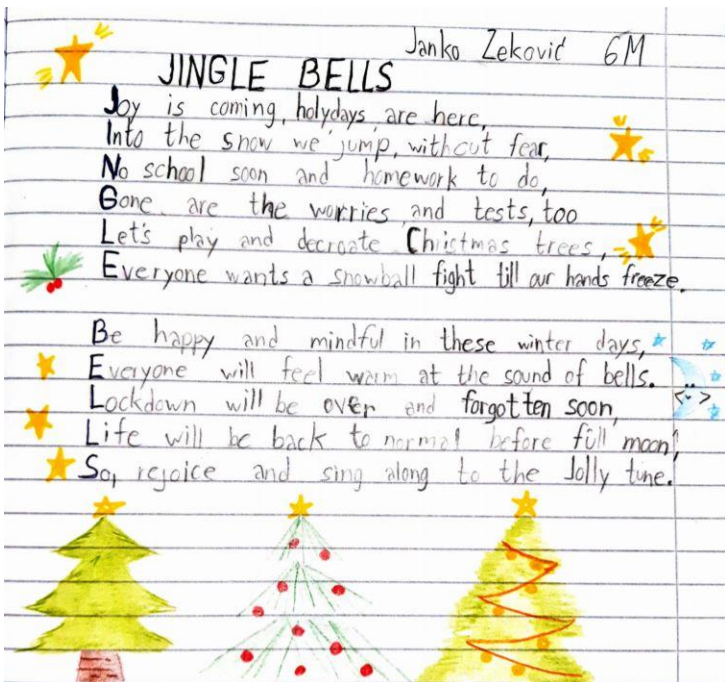 Janko Zeković 6M
JINGLE BELLS
Joy is coming, holydays are here,
Into the snow we jump, without fear,
No school soon and homework to do,
Gone are the worries and tests, too
Let's play and decroate Christmas trees,
Everyone wants a snowball fight till our hands freeze.
Be happy and mindful in these winter days,
Everyone will feel warm at the sound of bells.
Lockdown will be over and forgotten soon,
Life will be back to normal before full moon,
So, rejoice and sing along to the Jolly tune.